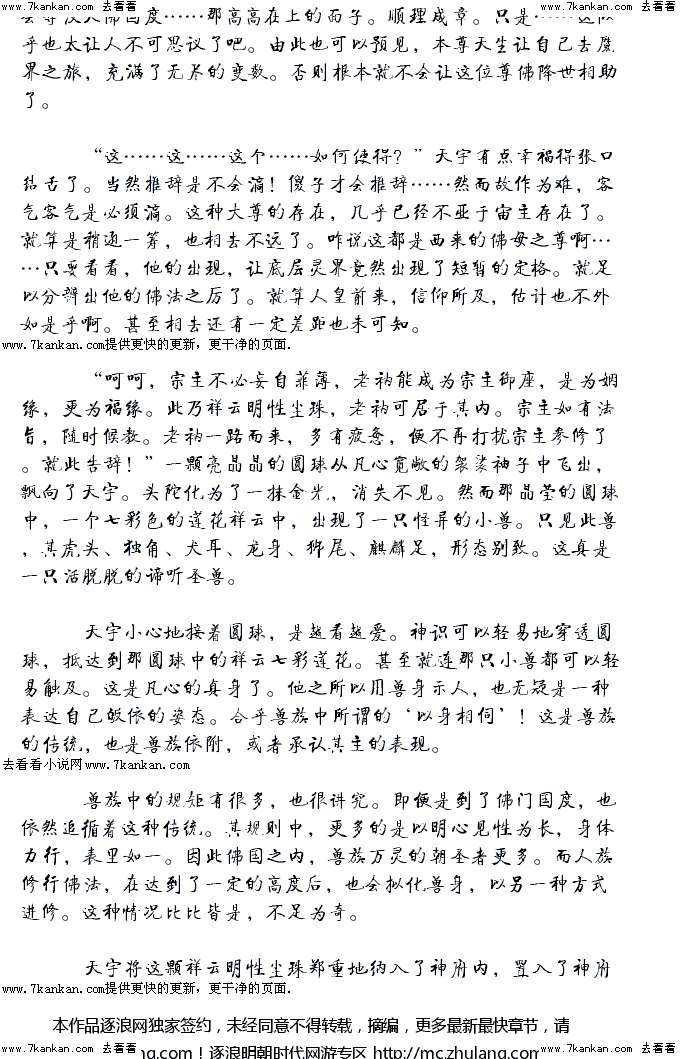 www.7kankan.com 去看看 www.7kankan.com 去看看 www.7kankan.com 去看看 www.7kankan.com 去看看
乎也太让人不可思议了吧。由此也可以预见，本尊天生让自己去魔
界之旅，充满了无尽的变数。否则根本就不会让这位尊佛降世相助
了。
“这……这……这个……如何使得？”天宇有点幸福得张口
结舌了。当然推辞是不会滴！傻子才会推辞……然而故作为难，客
气客气是必须滴。这种大尊的存在，几乎已经不亚于宙主存在了。
就算是稍逊一筹，也相去不远了。咋说这都是西来的佛母之尊啊…
…只要看看，他的出现，让底层灵界竟然出现了短暂的定格。就足
以分辨出他的佛法之厉了。就算人皇前来，信仰所及，估计也不外
如是乎啊。甚至相去还有一定差距也未可知。
www.7kankan.com提供更快的更新，更干净的页面.
“呵呵，宗主不必妄自菲薄，老衲能成为宗主御座，是为姻
缘，更为福缘。此乃祥云明性尘珠，老衲可居于其内。宗主如有法
旨，随时候教。老衲一路而来，多有疲惫，便不再打扰宗主参修了
。就此告辞！”一颗亮晶晶的圆球从凡心宽敞的袈裟袖子中飞出，
飘向了天宇。头陀化为了一抹金光，消失不见。然而那晶莹的圆球
中，一个七彩色的莲花祥云中，出现了一只怪异的小兽。只见此兽
，其虎头、独角、犬耳、龙身、狮尾、麒麟足，形态别致。这真是
一只活脱脱的谛听圣兽。
天宇小心地接着圆球，是越看越爱。神识可以轻易地穿透圆
球，抵达到那圆球中的祥云七彩莲花。甚至就连那只小兽都可以轻
易触及。这是凡心的真身了。他之所以用兽身示人，也无疑是一种
表达自己皈依的姿态。合乎兽族中所谓的‘以身相伺’！这是兽族
的传统，也是兽族依附，或者承认其主的表现。
去看看小说网www.7kankan.com
兽族中的规矩有很多，也很讲究。即便是到了佛门国度，也
依然追循着这种传统。其规则中，更多的是以明心见性为长，身体
力行，表里如一。因此佛国之内，兽族万灵的朝圣者更多。而人族
修行佛法，在达到了一定的高度后，也会拟化兽身，以另一种方式
进修。这种情况比比皆是，不足为奇。
天宇将这颗祥云明性尘珠郑重地纳入了神府内，置入了神府
www.7kankan.com提供更快的更新，更干净的页面.
本作品逐浪网独家签约，未经同意不得转载，摘编，更多最新最快章节，请
www.7kankan.com 去看看 www.7kankan.com 去看看 www.7kankan.com 去看看 www.7kankan.com 去看看
ng.com！逐浪明朝时代网游专区 http://mc.zhulang.com/